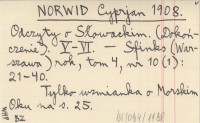 NORWID Cyprjan 1908.
Odczyty o Słowackim. (Dokoń-
czenie). V-VI. — Sfinks (War-
szawa) rok, tom 4, nr 10 (1):
21-40.
Tylko wzmianka o Morskim
Oku na s. 25.
BZ